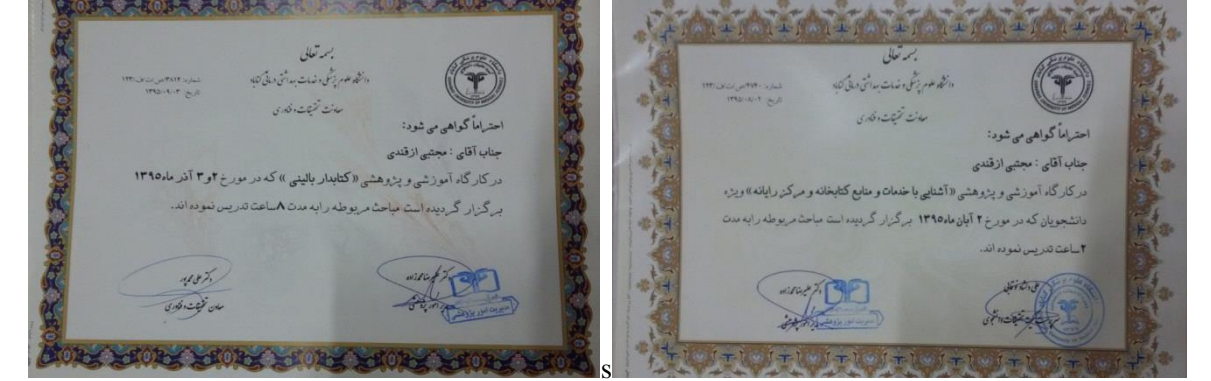 بسمه تعالی
دانشگاه علوم پزشکی و خدمات بهداشتی درمانی گناباد
معاونت تحقیقات و فناوری
تاریخ: ۱۳۹۵/۰۹/۰۳
احتراماً گواهی می شود:
جناب آقای : مجتبی ازقندی
در کارگاه آموزشی و پژوهشی «کتابدار بالینی» که در مورخ ۲و۳ آذر ماه۱۳۹۵
برگزار گردیده است مباحث مربوطه را به مدت ۸ساعت تدریس نموده اند.
معاون تحقیقات و فناوری
مدیریت امور پژوهشی
s
بسمه تعالی
دانشگاه علوم پزشکی و خدمات بهداشتی درمانی گناباد
معاونت تحقیقات و فناوری
احتراماً گواهی می شود:
جناب آقای : مجتبی ازقندی
در کارگاه آموزشی و پژوهشی «آشنایی با خدمات و منابع کتابخانه و مرکز رایانه» ویژه
دانشجویان که در مورخ ۲ آبان ماه۱۳۹۵ برگزار گردیده است مباحث مربوطه را به مدت
۲ساعت تدریس نموده اند.
مدیریت امور پژوهشی